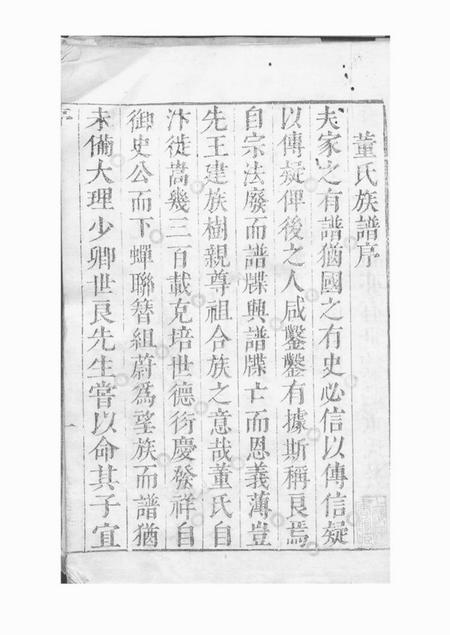 董氏族譜序
夫家之有譜猶國之有史必信以傳信疑
以傳疑俾後之人咸鑿鑿有據斯稱良焉
自宗法廢而譜牒興譜牒亡而恩義薄豈
先王建族樹親尊祖合族之意哉董氏自
汴徙嵩幾三百載克培世德衍慶發祥自
御史公而下蟬聯簪組蔚為望族而譜猶
未備大理少卿世良先生嘗以命其子宜
一